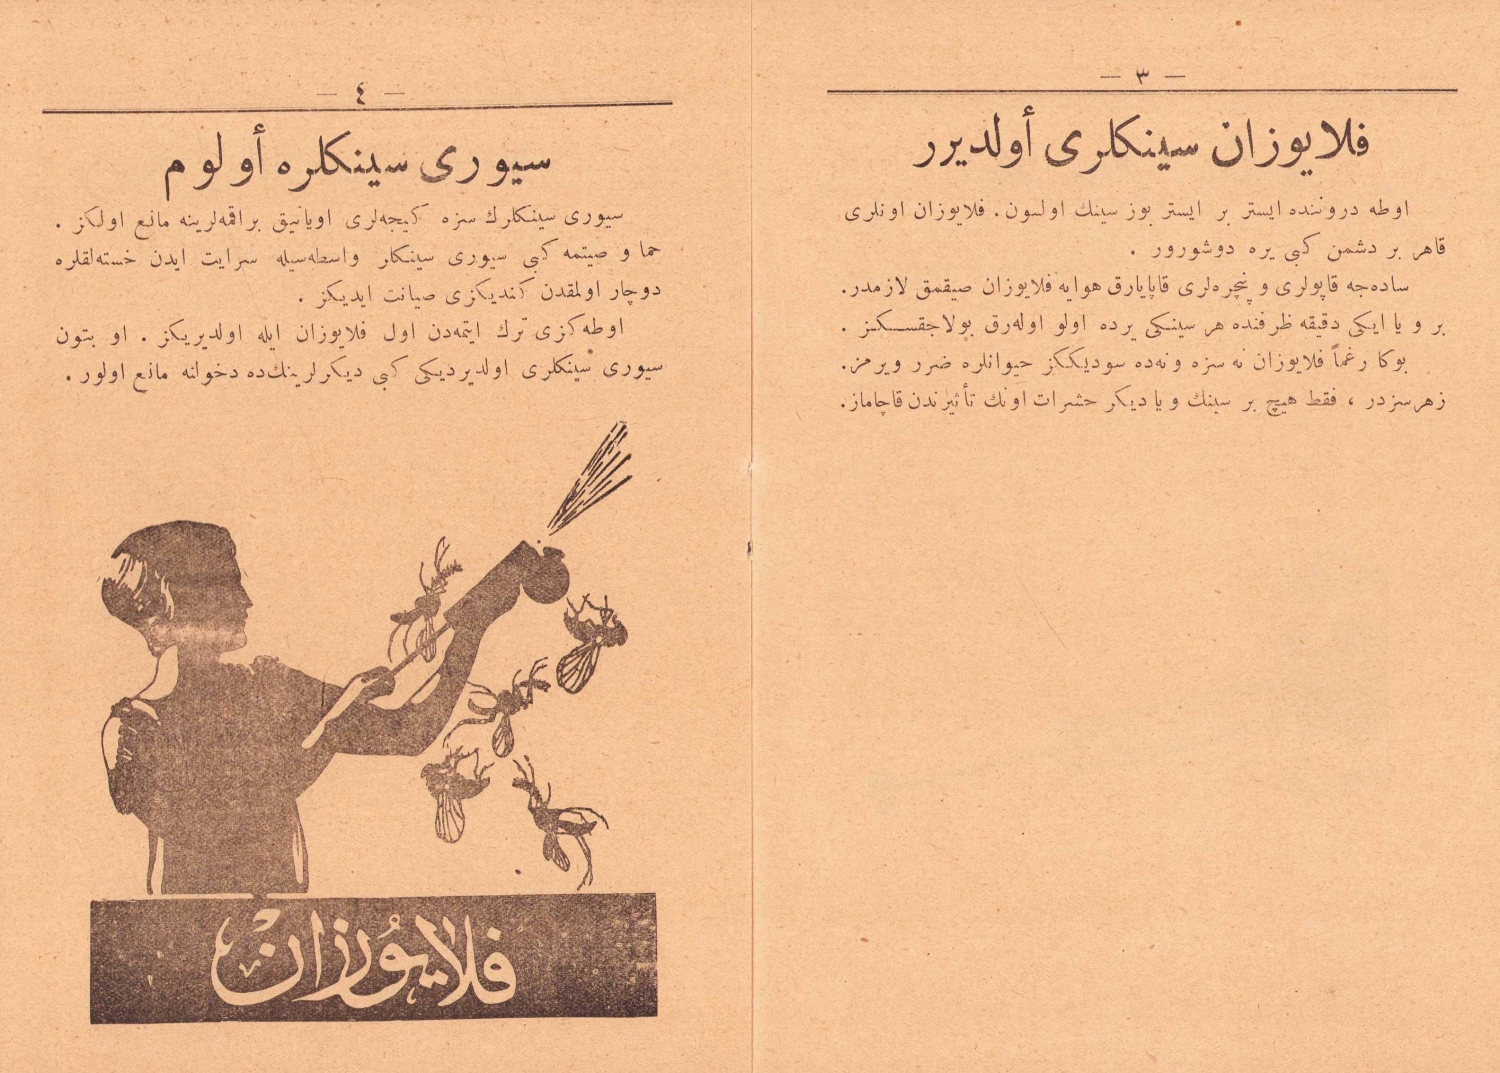 — ٣ —
فلايوزان سينكلرى أولديرر
اوطه دروننده ايستر بر ايستر يوز سينك اولسون. فلايوزان اونلرى
قاهر بر دشمن كبى يره دوشورور .
ساده‌جه قاپولرى و پنچره‌لرى قاپايارق هوايه فلايوزان صيقمق لازمدر.
بر و يا ايكى دقيقه ظرفنده هر سينكى يرده اولو اوله‌رق بولاجقسكز .
بوكا رغماً فلايوزان نه سزه و نه‌ده سوديككز حيوانلره ضرر ويرمز.
زهرسزدر ، فقط هيچ بر سينك و يا ديكر حشرات اونك تأثيرندن قاچاماز.
— ٤ —
سيورى سينكلره أولوم
سيورى سينكلرك سزه كيجه‌لرى اويانيق براقمه‌لرينه مانع اولكز .
حما و صيتمه كبى سيورى سينكلر واسطه‌سيله سرايت ايدن خسته‌لقلره
دوچار اولمقدن كنديكزى صيانت ايديكز .
اوطه‌كزى ترك ايتمه‌دن اول فلايوزان ايله اولديريكز . او بتون
سيورى سينكلرى اولديرديكى كبى ديكرلرينك‌ده دخولنه مانع اولور .
فلايوزان